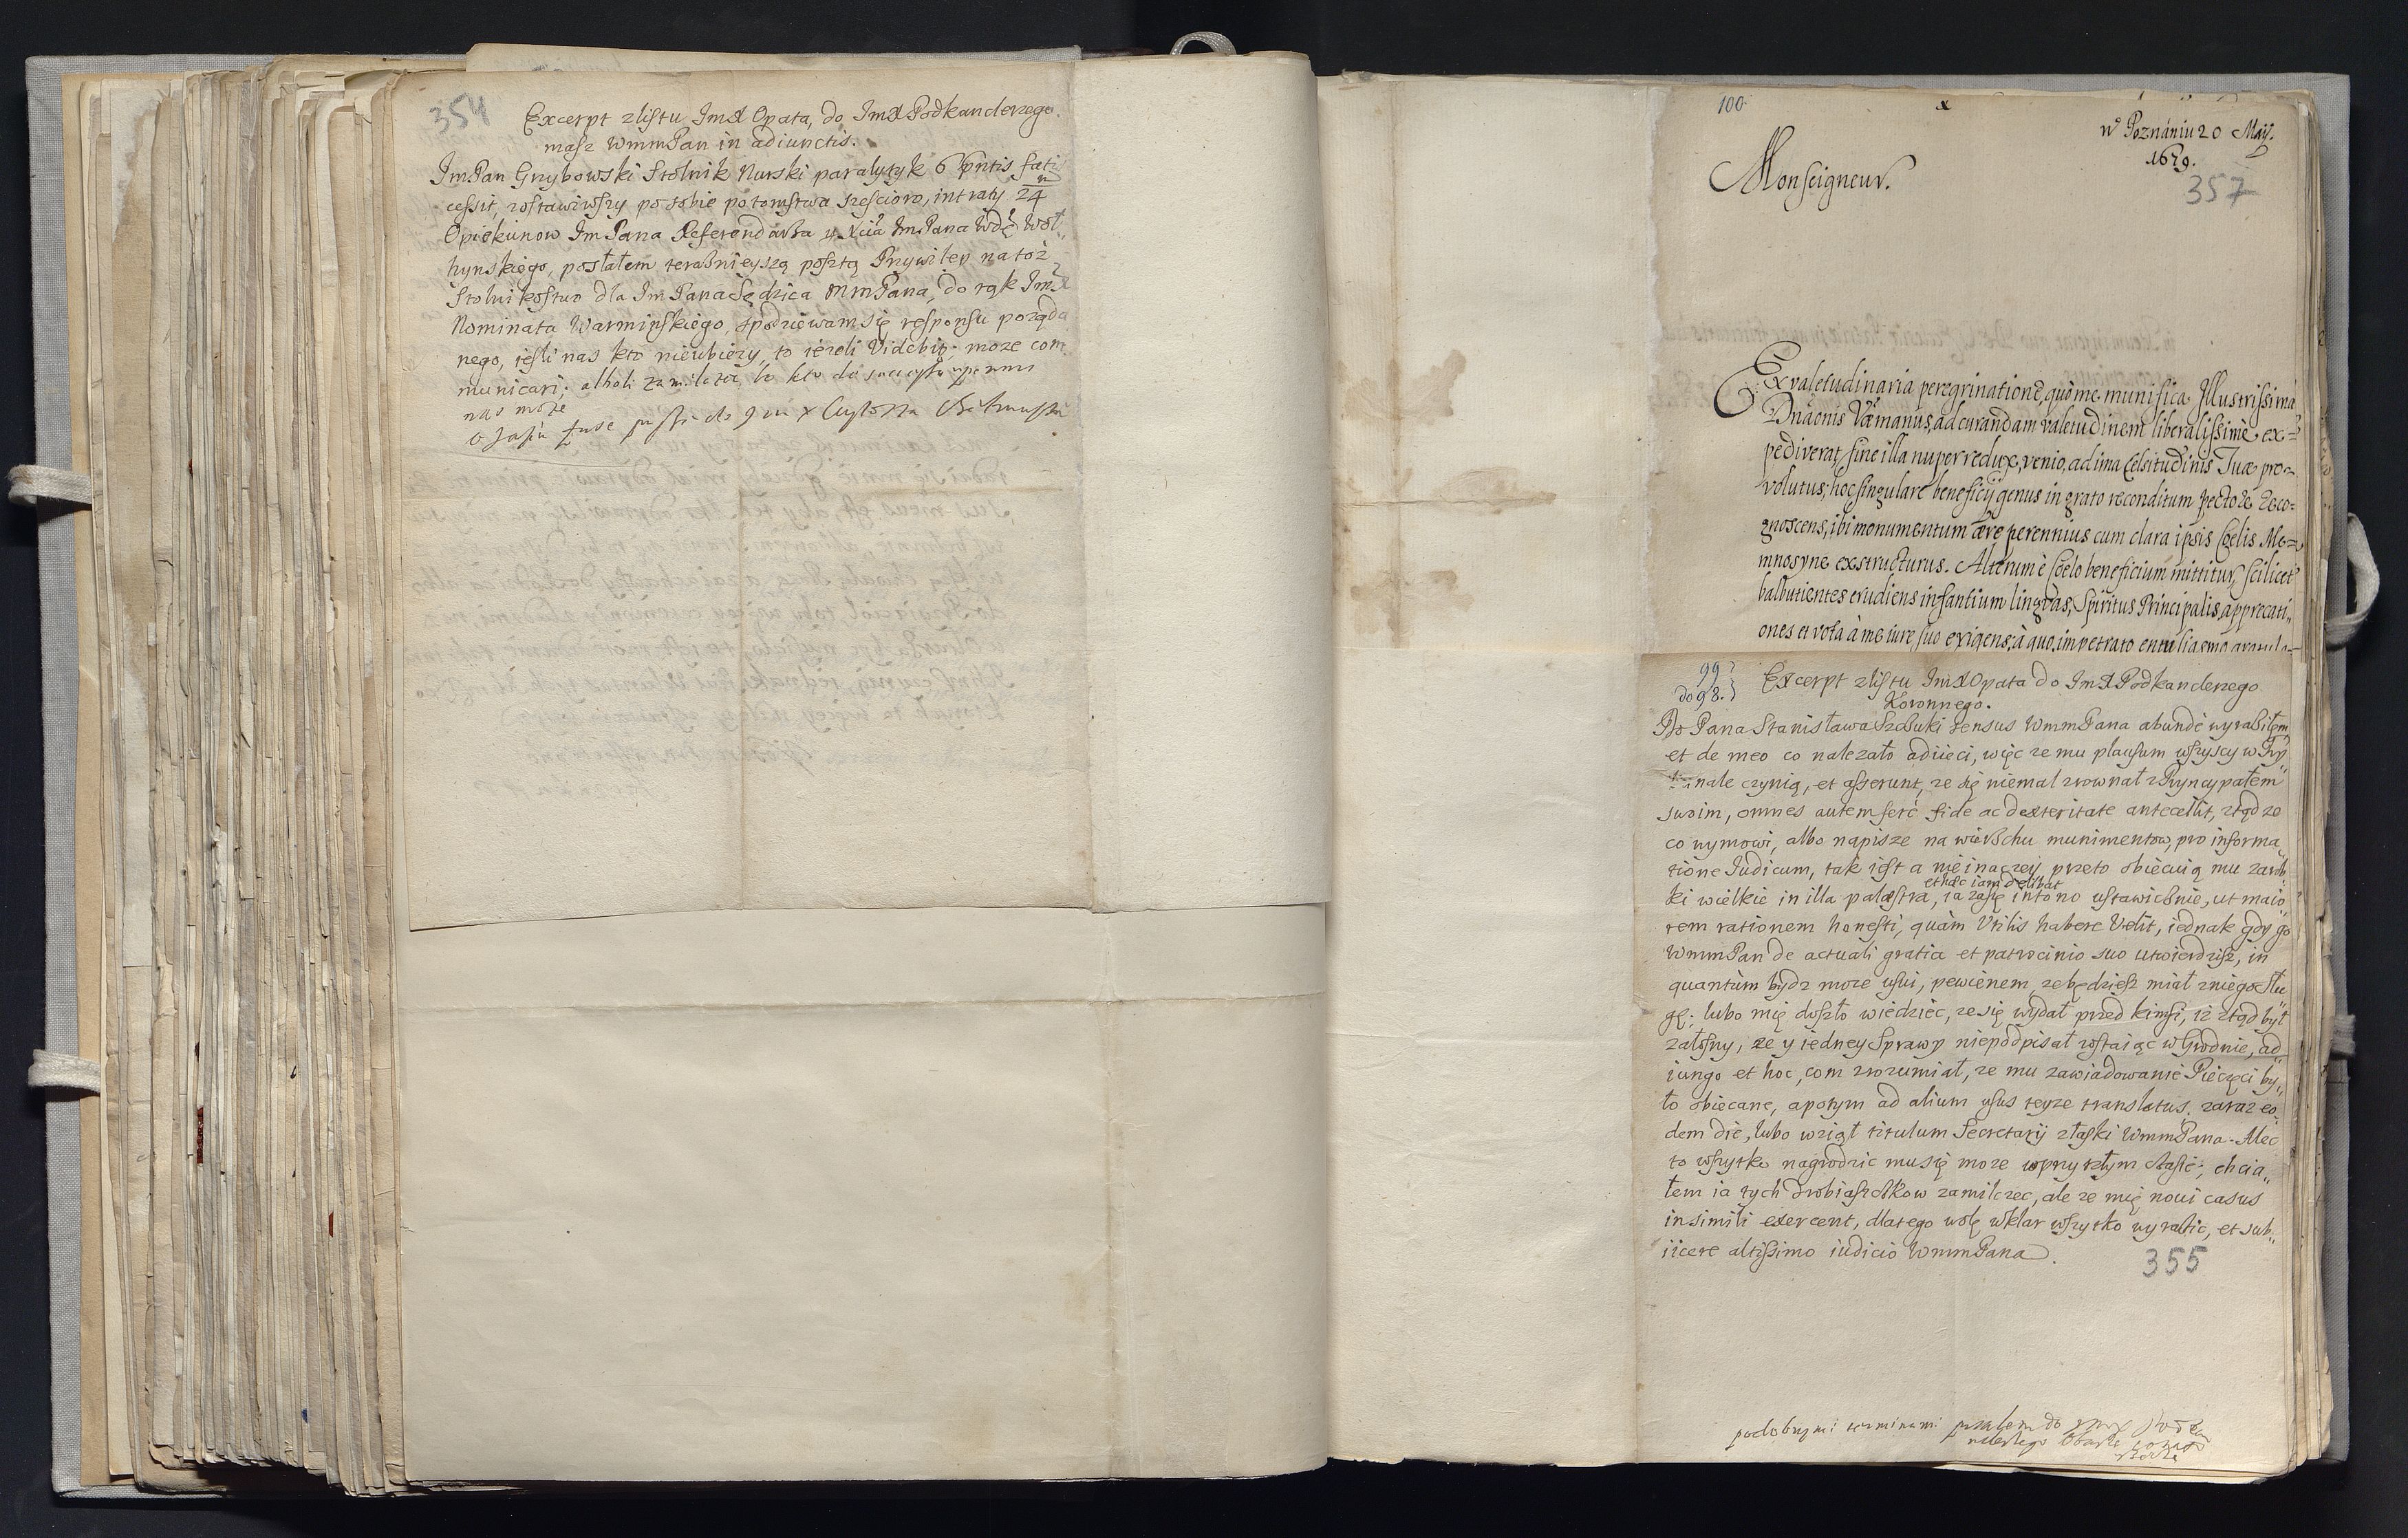 354
Excerpt z listu ImX Opata, do ImX Podkanclerzego.
masz WmmPan in adiunctis.
ImPan Grzybowski Stolnik Nurski paralytyk 6 pntis fati
cessit, zostawiwszy po sobie potomstwa sześcioro, intraty 24
Opiekunow ImPana Referendarza y Xcia ImPana Wdę Woł„
hynskiego, posłałem teraznieyszą posztą Przywiley na toż
Stolnikostwo dla ImPana Sędzica MmPana, do rąk ImX
Nominata Warminskiego, spodziewam się responsu porząda
nego, iesli nas kto nieubiezy, to iezeli Videbit: moze com
municari; alboli zamilczec, bo kto do
nas moze
100
w Poznániu 20 Maij.
1679.
357
Monseigneur.
Ex valetudinaria peregrinatione, quò me munifica Illustrissimæ
Dnaõnis Væ manus, ad curandam valetudinem liberalissimè ex=
pediverat, sine illa nuper redux, venio, ad ima Celsitudinis Tuæ pro=
volutus; hoc singulare beneficij genus in grato reconditum pectore reco=
gnoscens, ibi monumentum ære perennius cum clara ipsis Cœlis Me=
mnosyne exstructurus. Alterum è Cœlo beneficium mittitur, scilicet
balbutientes erudiens infantium linguas, Spiritus Principalis, apprecati„
ones et vota à me iure suo exigens; à quo impetrato entusiasmo gratula=
99
do 98.
Excerpt z listu ImX Opata do ImX Podkanclerzego
Koronnego.
Do Pana Stanisława Szczuki sensus WmmPana abundè wyraziłem,
et de meo co nalezało adiieci, więc ze mu plausum wszyscy w Try„
bunale czynią, et asserunt, ze się niemal zrownał z Pryncypałem
swoim, omnes autem ferè fide ac dexteritate antecellit, ztąd ze
co wymowi, albo napisze na wierzchu munimentow, pro informa„
tione Iudicum, tak iest a nie inaczey przeto obiecuią mu zarob„
et hæc iam delibat
ki wielkie in illa palæstra, ia zasię intono ustawicznie, ut maio„
rem rationem honesti, quàm Vtilis habere Velit, iednak gdy go
WmmPan de actuali gratia et patrocinio suo utwierdzisz, in
quantùm bydz moze usui, pewienem, ze będziesz miał z niego Słu„
gę; lubo mię doszło wiedziec, ze się wydał przed kimsi, iz ztąd był
załosny, ze y iedney Sprawy niepodpisał zostaiąc w Grodnie, ad„
iungo et hoc, com zrozumiał, ze mu zawiadowanie Pieczęci by„
ło obiecane, a potym ad alium usus teyze translatus zaraz eo„
dem die, lubo wziął titulum Secretarij z łaski WmmPana. Alec
to wszytko nagrodzic mu się moze w przyszłym czasie; chcia„
łem ia tych drobiazczkow zamilczec, ale ze mię noui casus
in simili exercent, dlatego wolę wklar wszytko wyrazic, et sub„
iicere altissimo iudicio WmmPana.
355
podobnymi terminami pisałem do